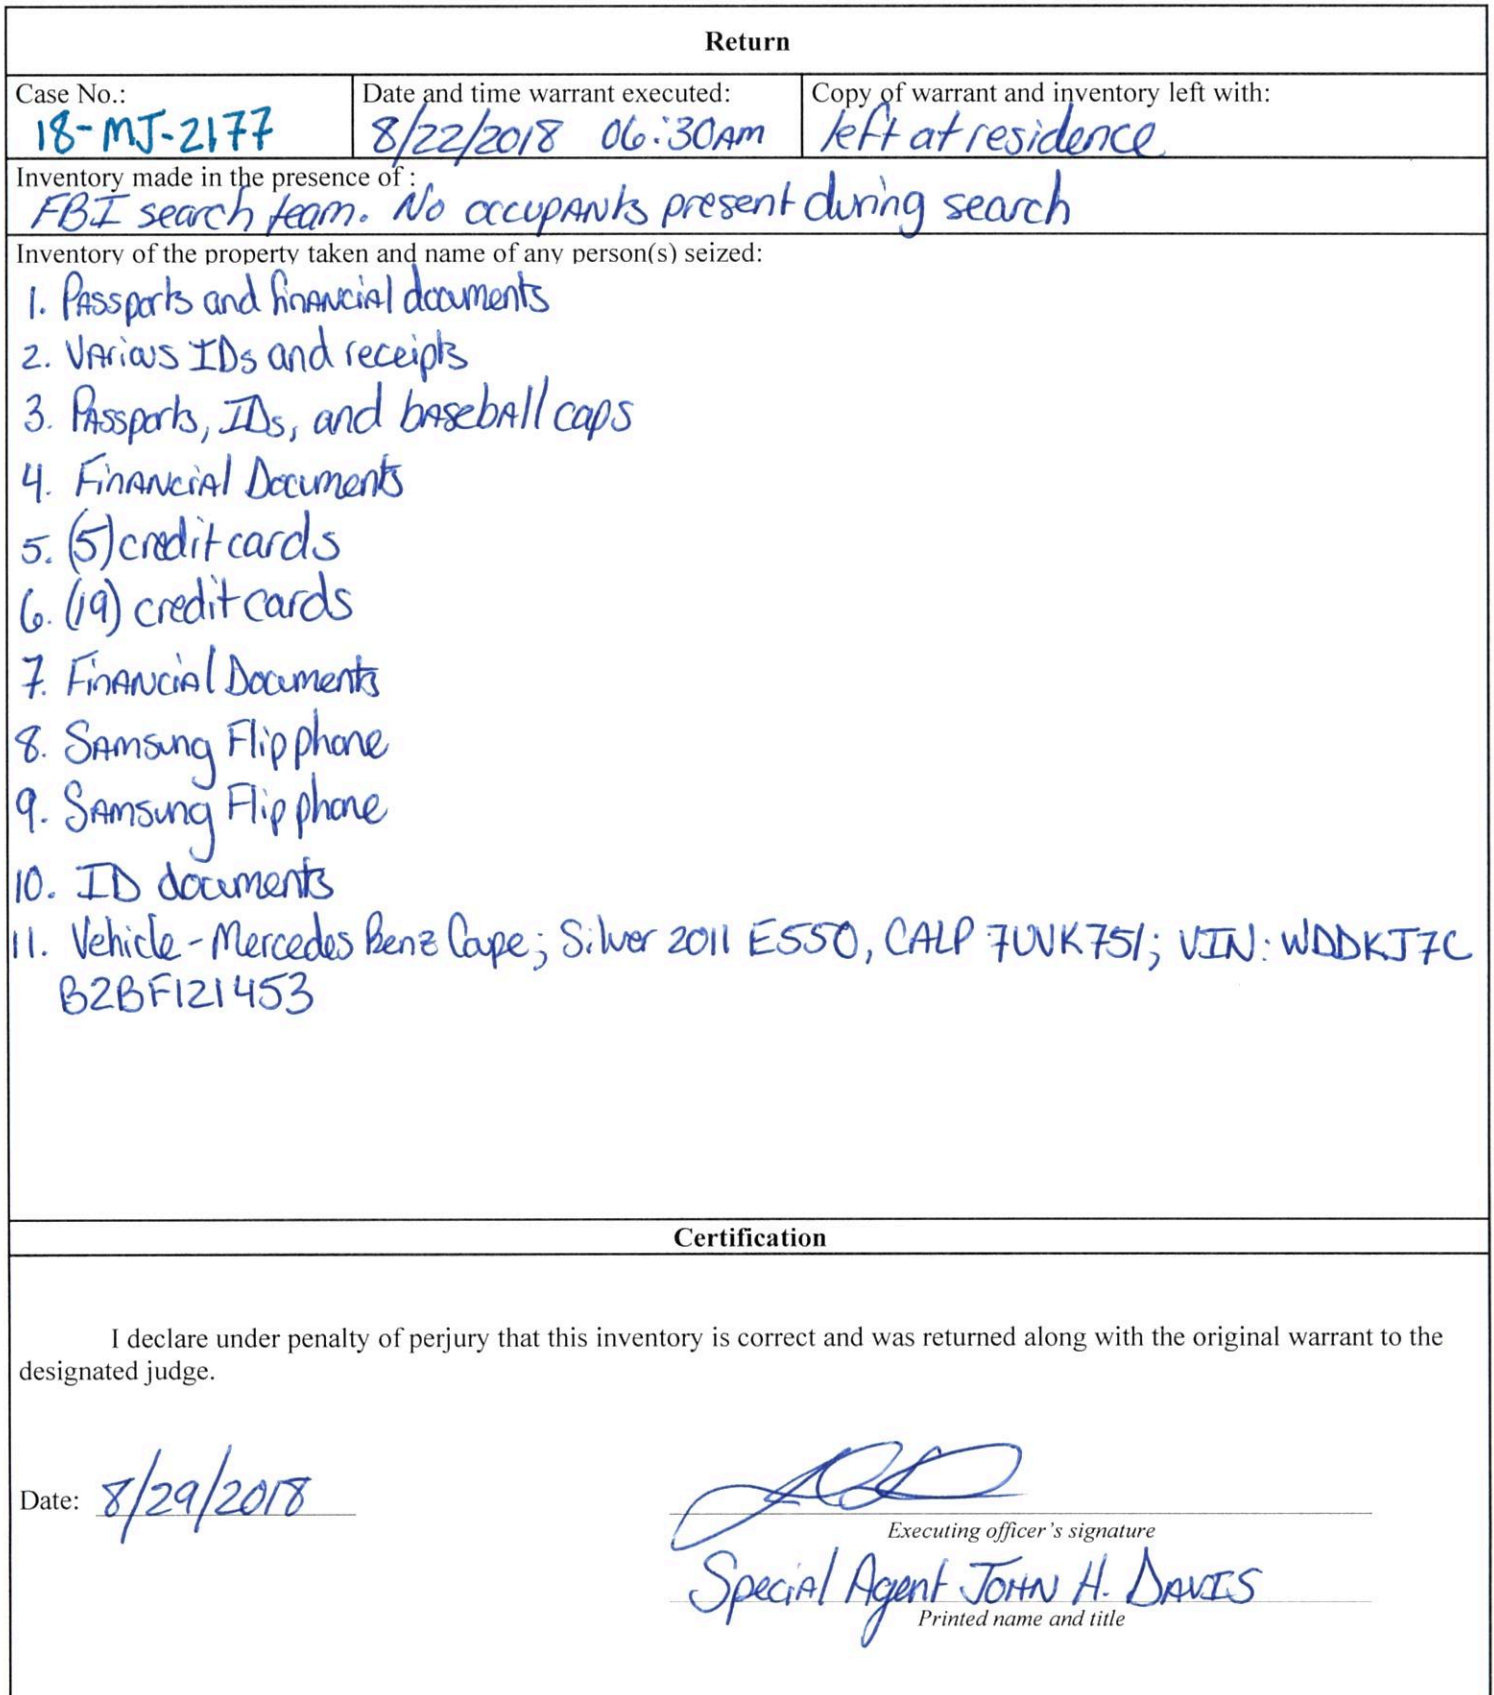 Return
Case No.:
18-MJ-2177
Date and time warrant executed:
8/22/2018 06:30AM
Copy of warrant and inventory left with:
left at residence
Inventory made in the presence of :
FBI search team. No occupants present during search
Inventory of the property taken and name of any person(s) seized:
1. Passports and financial documents
2. Various IDs and receipts
3. Passports, IDs, and baseball caps
4. Financial Documents
5. (5) credit cards
6. (19) credit cards
7. Financial Documents
8. Samsung Flip phone
9. Samsung Flip phone
10. ID documents
11. Vehicle - Mercedes Benz Coupe; Silver 2011 E550, CALP 7UVK751; VIN: WDDKJ7C
B2BF121453
Certification
I declare under penalty of perjury that this inventory is correct and was returned along with the original warrant to the
designated judge.
Date: 8/29/2018
Executing officer's signature
Special Agent JOHN H. DAVIS
Printed name and title